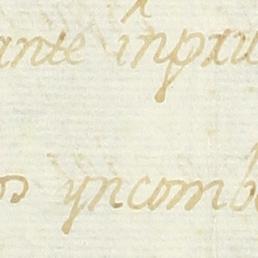 ante inpru
os yncomb